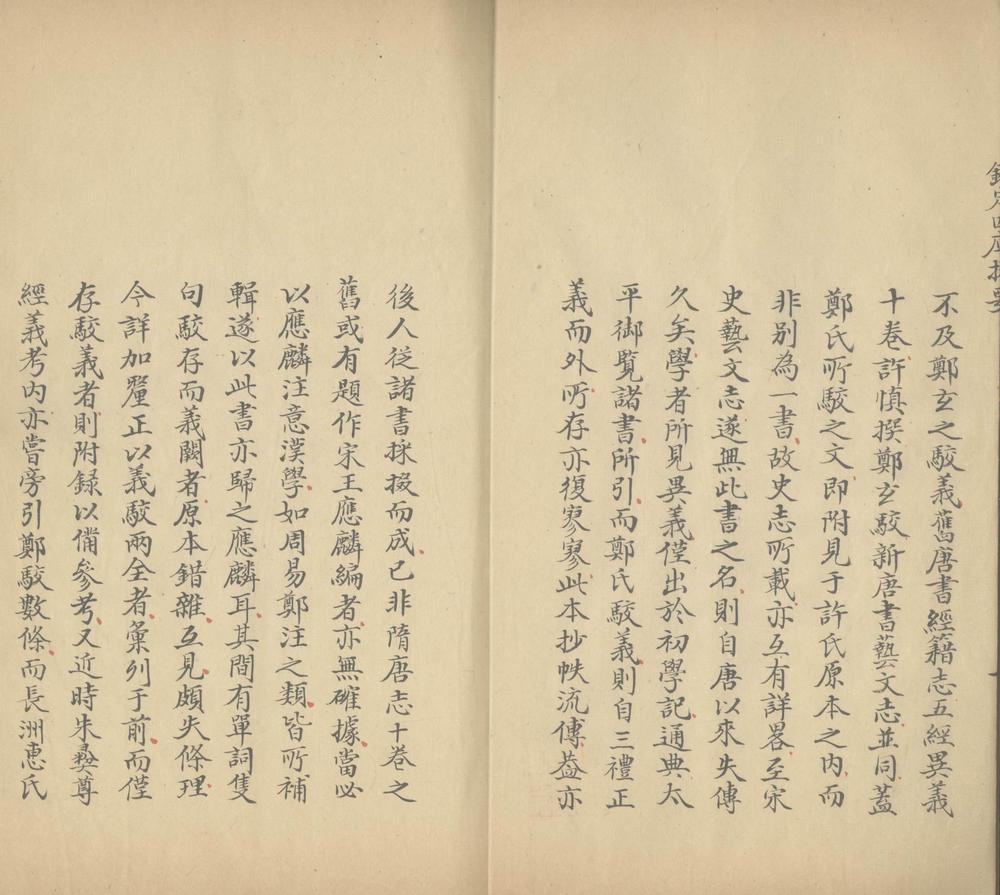 不及鄭玄之駮義舊唐書經籍志五經異義
十卷許慎撰鄭玄駮新唐書藝文志並同蓋
鄭氏所駮之文即附見于許氏原本之內而
非別為一書故史志所載亦互有詳畧至宋
史藝文志遂無此書之名則自唐以來失傳
久矣學者所見異義僅出於初學記通典太
平御覽諸書所引而鄭氏駮義則自三禮正
義而外所存亦復寥寥此本抄帙流傳葢亦
後人從諸書採掇而成已非隋唐志十卷之
舊或有題作宋王應麟編者亦無確據當必
以應麟注意漢學如周易鄭注之類皆所補
輯遂以此書亦歸之應麟耳其間有單詞隻
句駮存而義闕者原本錯雜互見頗失條理
今詳加釐正以義駮兩全者彙列于前而僅
存駮義者則附録以備參考又近時朱彞尊
經義考內亦嘗旁引鄭駮數條而長洲惠氏